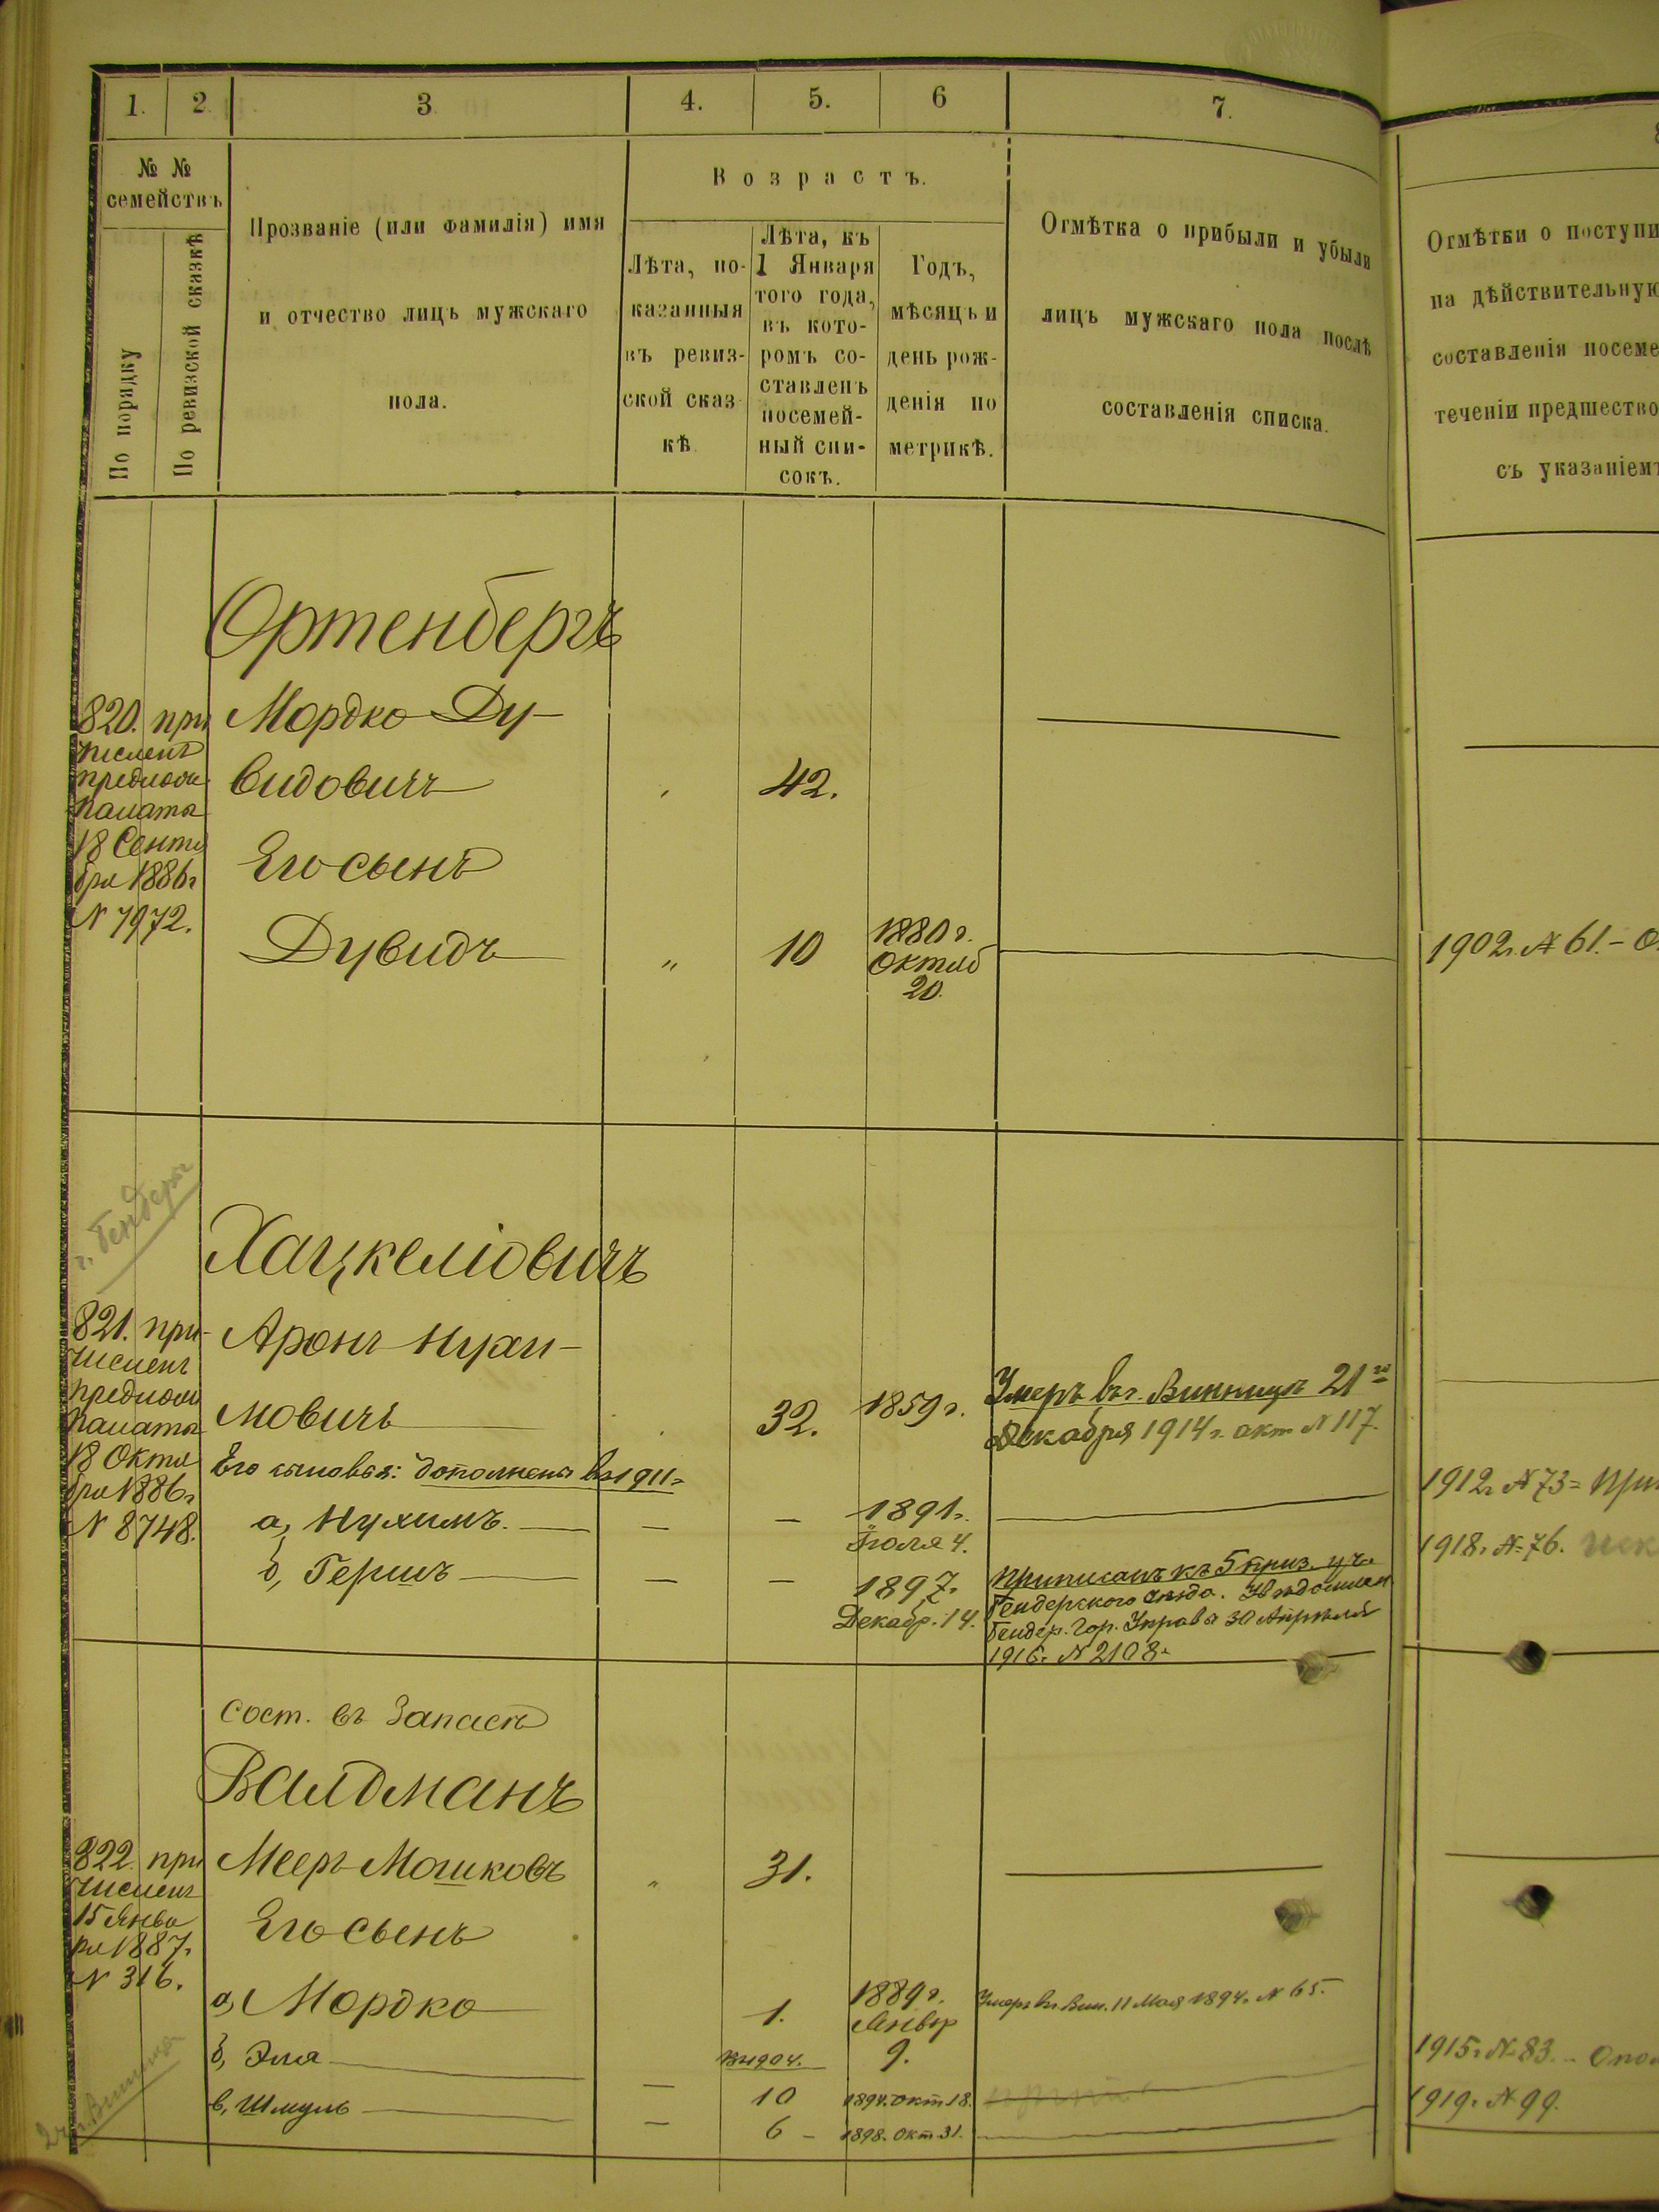 1. 2 3 4. 5. 6 7.
№ № семействъ
По порядку
По ревизской сказкѣ
Прозваніе (или фамилія) имя
и отчество лицъ мужскаго
пола.
Возрастъ.
Лѣта, по-
казанныя
въ ревиз-
ской сказ-
кѣ.
Лѣта, къ
1 Января
того года,
въ кото-
ромъ со-
ставленъ
посемей-
ный спи-
сокъ.
Годъ,
мѣсяцъ и
день рож-
денія по
метрикѣ.
Отмѣтка о прибыли и убыли
лицъ мужскаго пола послѣ
составленія списка.
Отмѣтки о поступи
на дѣйствительную
составленія посеме
теченіи предшество
съ указаніемъ
Ортенбергъ
820. при
численъ
предпосы
палаты
18 Сентя
бря 1886г
N 7972.
Мордко Ду-
видовичъ
42.
Его сынъ
Дувидъ
„ 10
1880 г.
Октяб
20.
1902г. № 61. –
г. Бендеры
Хацкеліовичъ
821. при-
численъ
палаты
18 Октя
бря 1886г
N 8748.
Аронъ Нухи-
мовичъ
32. 1859 г.
Умеръ въ г. Винницѣ 21го
Декабря 1914 г. акт N 117.
Его сыновья: дополнены въ 1911г
а, Нухимъ. — — 1891г.
Іюля 4.
1912г № 73 =
б, Гершъ — — 1897г.
Декабр. 14.
1918г. № 76.
приписанъ къ 5 приз. уч.
Бендерского уѣзда. Увѣдомлен
Бендер. Гор. Управы 30 Апрѣля
1916г. N 2108.
сост. въ Запасѣ
Валдманъ
822. при
численъ
15 Янва
ря 1887г
N 316.
Меер Мошковъ
„ 31.
Его сынъ
а, Мордко
1. 1889 г.
Январ
9.
Умеръ въ Вин. 11 Мая 1894г. N 65.
б, Эля
въ 1904.
— 10 1894. окт 18.
1915г № 83. –
в, Шмуль
— 6 – 1898. Окт. 31.
1919г. № 99.